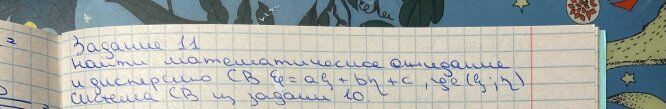 Задание 11
Найти математическое ожидание
и дисперсию СВ ξ = aξ + bη + c, где (ξ; η)
система СВ из задани 10.